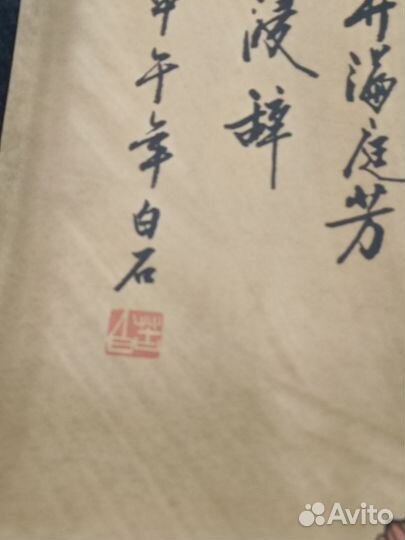 满庭芳
陵辞
甲午年白石
Avito